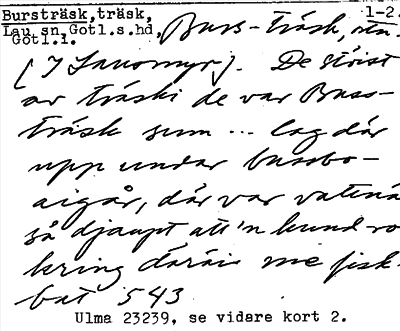 Bursträsk, träsk, 1-2.
Lau sn, Gotl.s.hd,
Gotl.l.
Burs-träsk,
[I Lauomyr]. De störst
av träski de var Burs-
träsk sum ... lag där
upp undar bussbo-
aigår, där var vatnä
så djaupt att'n kund ro
kring däräi me fisk-
bat 543
Ulma 23239, se vidare kort 2.